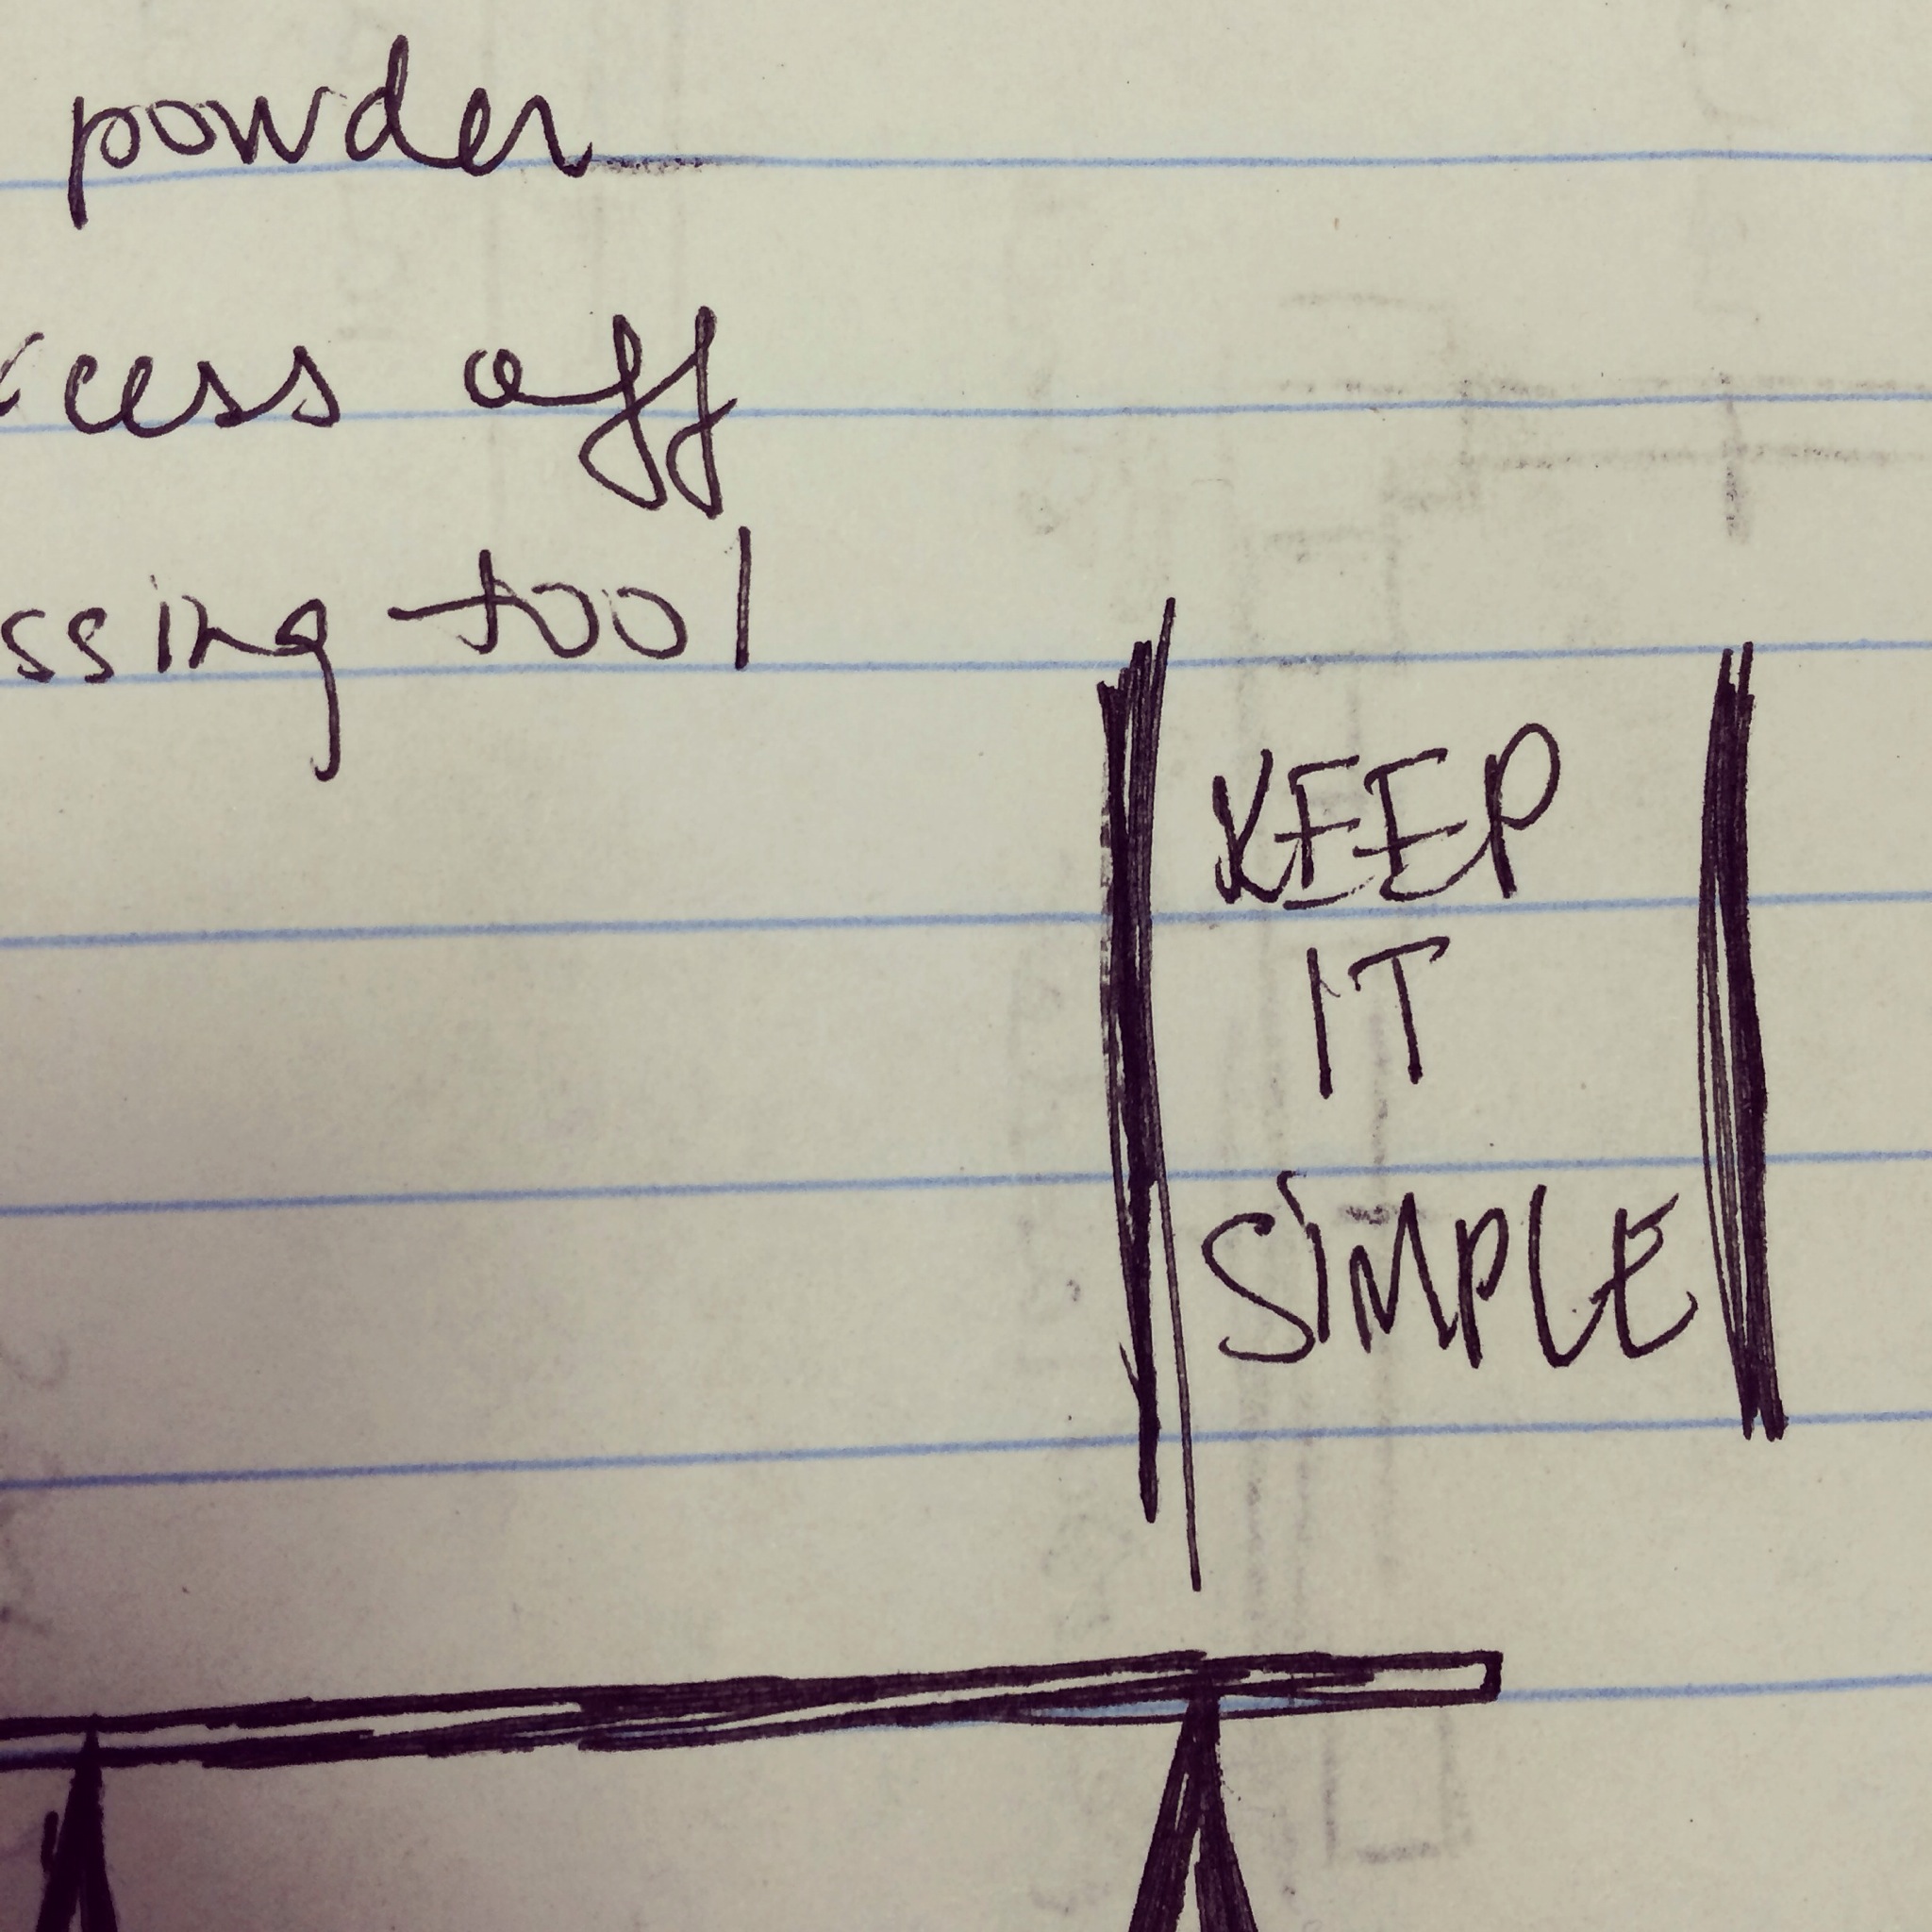 powder
xcess off
ssing tool
KEEP
IT
SIMPLE